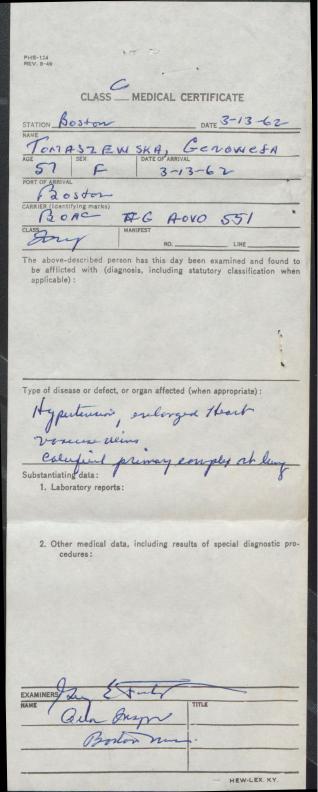 PHS-124
REV. 8-49
C
CLASS __ MEDICAL CERTIFICATE
STATION Boston DATE 3-13-62
NAME
TOMASZEWSKA, GENOWEFA
AGE SEX DATE OF ARRIVAL
57 F 3-13-62
PORT OF ARRIVAL
Boston
CARRIER (Identifying marks)
BOAC #G AOVO 551
CLASS MANIFEST
NO. LINE
The above-described person has this day been examined and found to
be afflicted with (diagnosis, including statutory classification when
applicable) :
Type of disease or defect, or organ affected (when appropriate) :
Hypertension, enlarged Heart
varicose veins
calcified primary complex rt lung
Substantiating data:
1. Laboratory reports:
2. Other medical data, including results of special diagnostic pro-
cedures:
EXAMINERS
NAME TITLE
Boston
HEW-LEX. KY.